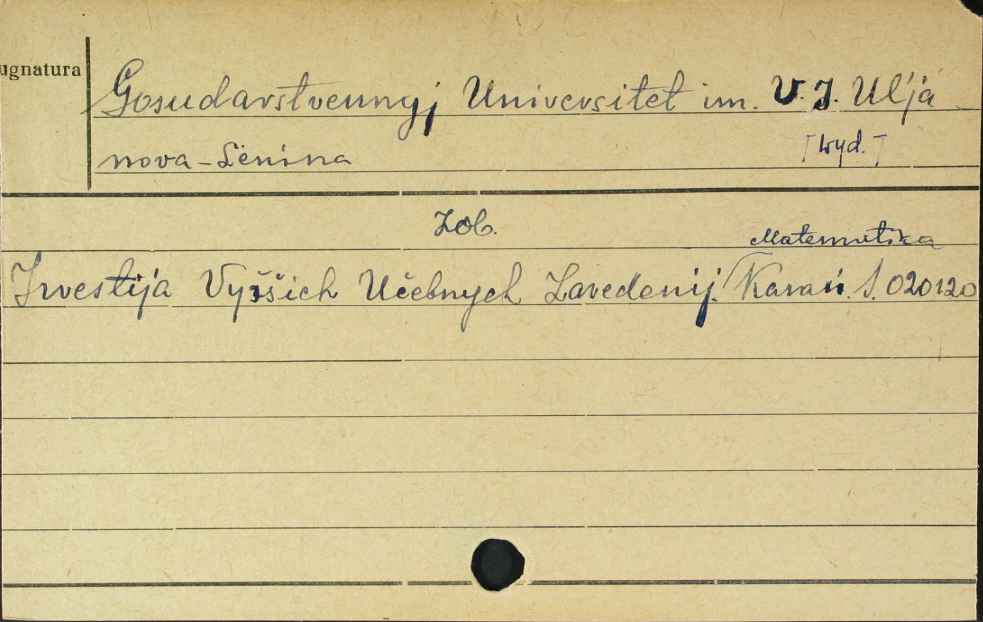 ugnatura
Gosudarstvennyj Universitet im. V. I. Ul'ja
nova-Lenina [wyd.]
Zob.
Matematika
Izvestija Vyšších Učebnych Zavedenij. Kazań. S. 020120